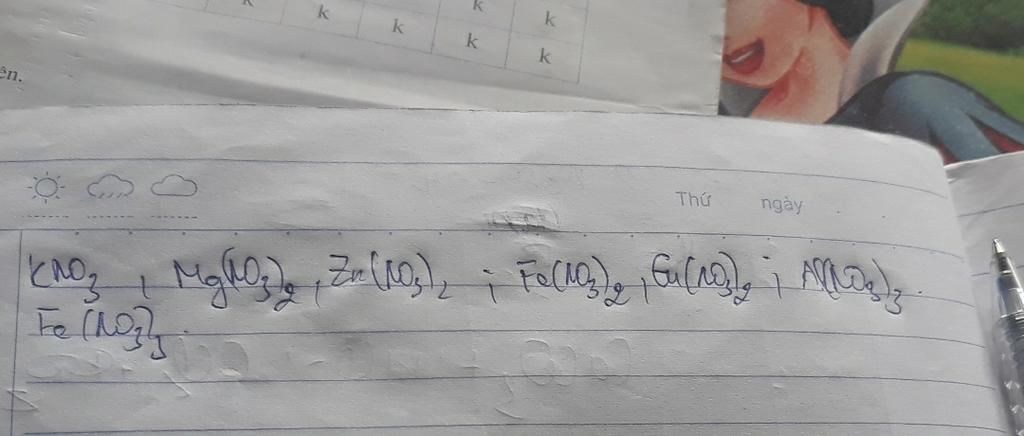 k k k
k k k
k
ên.
Thứ ngày
KNO3 , Mg(NO3)2 , Zn(NO3)2 ; Fe(NO3)2 , Cu(NO3)2 ; Al(NO3)3 .
Fe(NO3)3 .